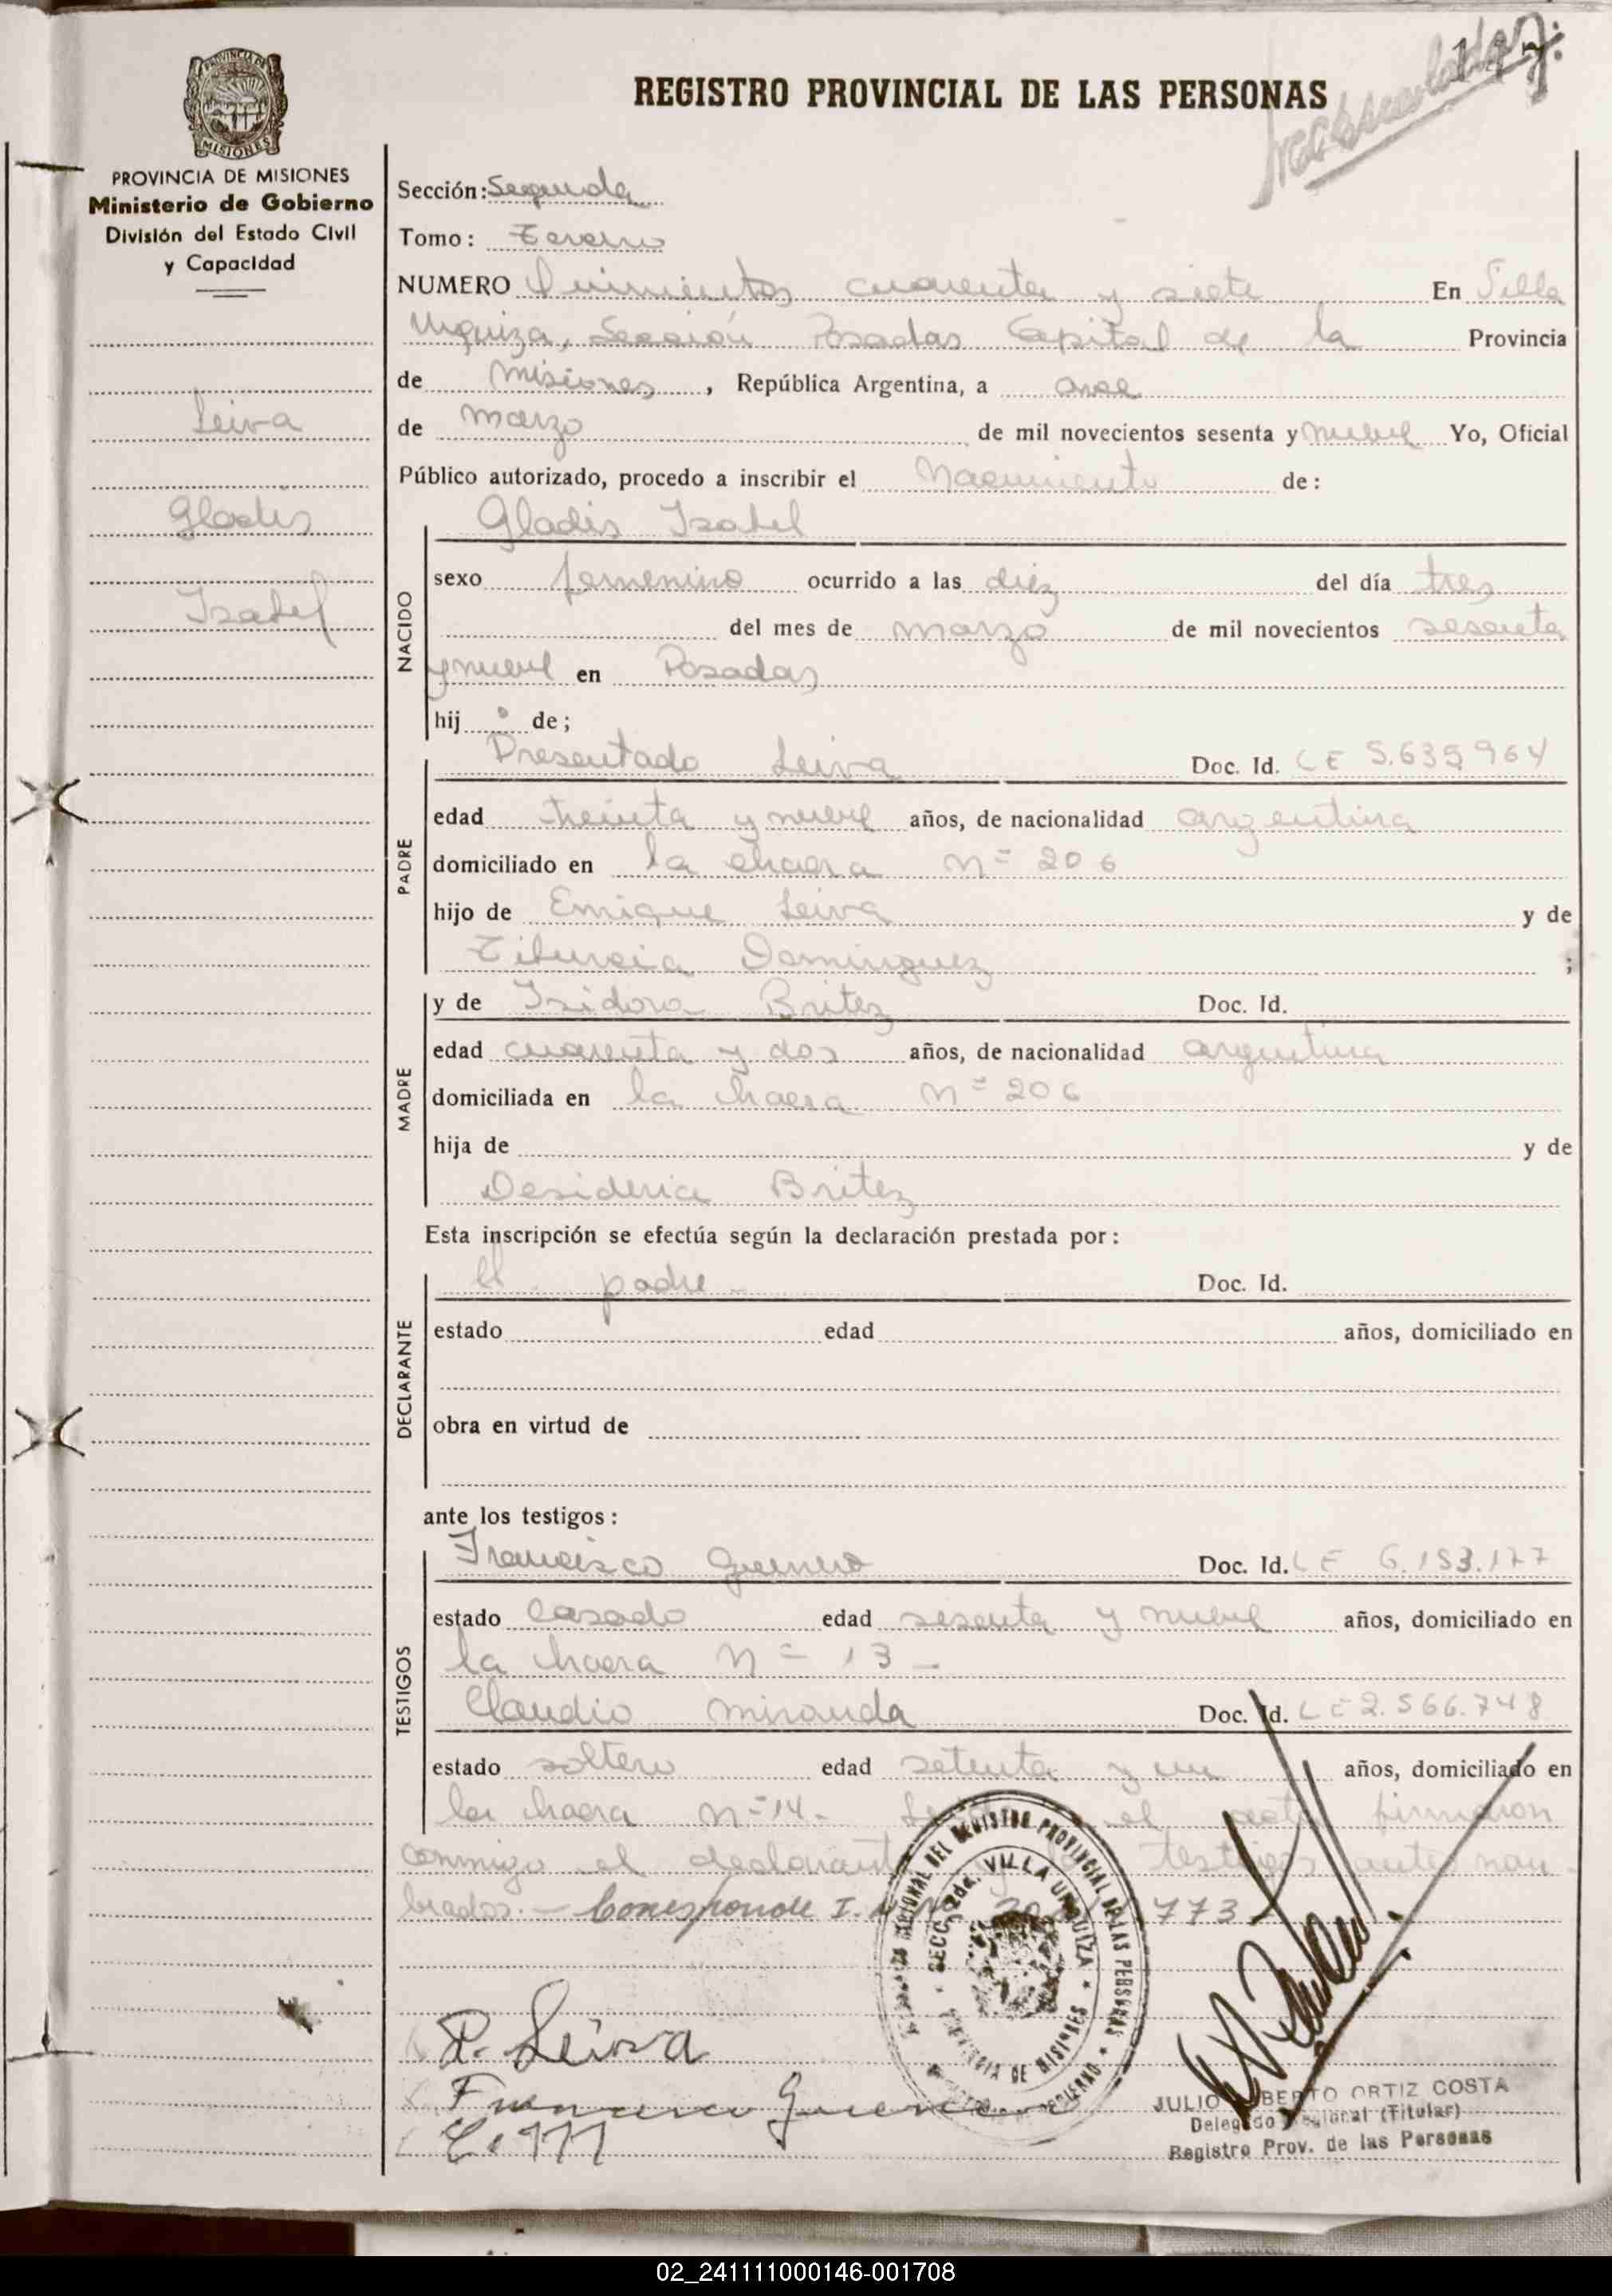 117
REGISTRO PROVINCIAL DE LAS PERSONAS
PROVINCIA DE MISIONES
Ministerio de Gobierno
División del Estado Civil
y Capacidad
Leiva
Gladis
Isabel
Sección: Segunda
Tomo: Tercero
NUMERO Quinientos cuarenta y siete En Villa
Urquiza, Sección Posadas Capital de la Provincia
de Misiones, República Argentina, a once
de marzo de mil novecientos sesenta y nueve Yo, Oficial
Público autorizado, procedo a inscribir el Nacimiento de:
Gladis Isabel
NACIDO
sexo femenino ocurrido a las diez del día tres
del mes de marzo de mil novecientos sesenta
y nueve en Posadas
hij de;
PADRE
Presentado Leiva Doc. Id. LE 5.635964
edad treinta y nueve años, de nacionalidad argentina
domiciliado en la chacra n= 206
hijo de Enrique Leiva y de
Tiburcia Dominguez ;
MADRE
y de Isidora Britez Doc. Id.
edad cuarenta y dos años, de nacionalidad argentina
domiciliada en la chacra n= 206
hija de y de
Desideria Britez
Esta inscripción se efectúa según la declaración prestada por:
DECLARANTE
el padre Doc. Id.
estado edad años, domiciliado en
obra en virtud de
ante los testigos:
TESTIGOS
Francisco Guerrero Doc. Id. LE 6.153.177
estado casado edad sesenta y nueve años, domiciliado en
la chacra n= 13 -
Claudio Miranda Doc. Id. LE 2.566.748
estado soltero edad setenta y un años, domiciliado en
la chacra n=14- el acta firmaron
conmigo el declarante testigos antes nom-
brados.- Corresponde I. 773
SECC. 2da. VILLA URQUIZA
PROVINCIA DE MISIONES
P. Leiva
Francisco Guerrero
C. M
JULIO ALBERTO ORTIZ COSTA
Delegado Regional (Titular)
Registro Prov. de las Personas
02_241111000146-001708